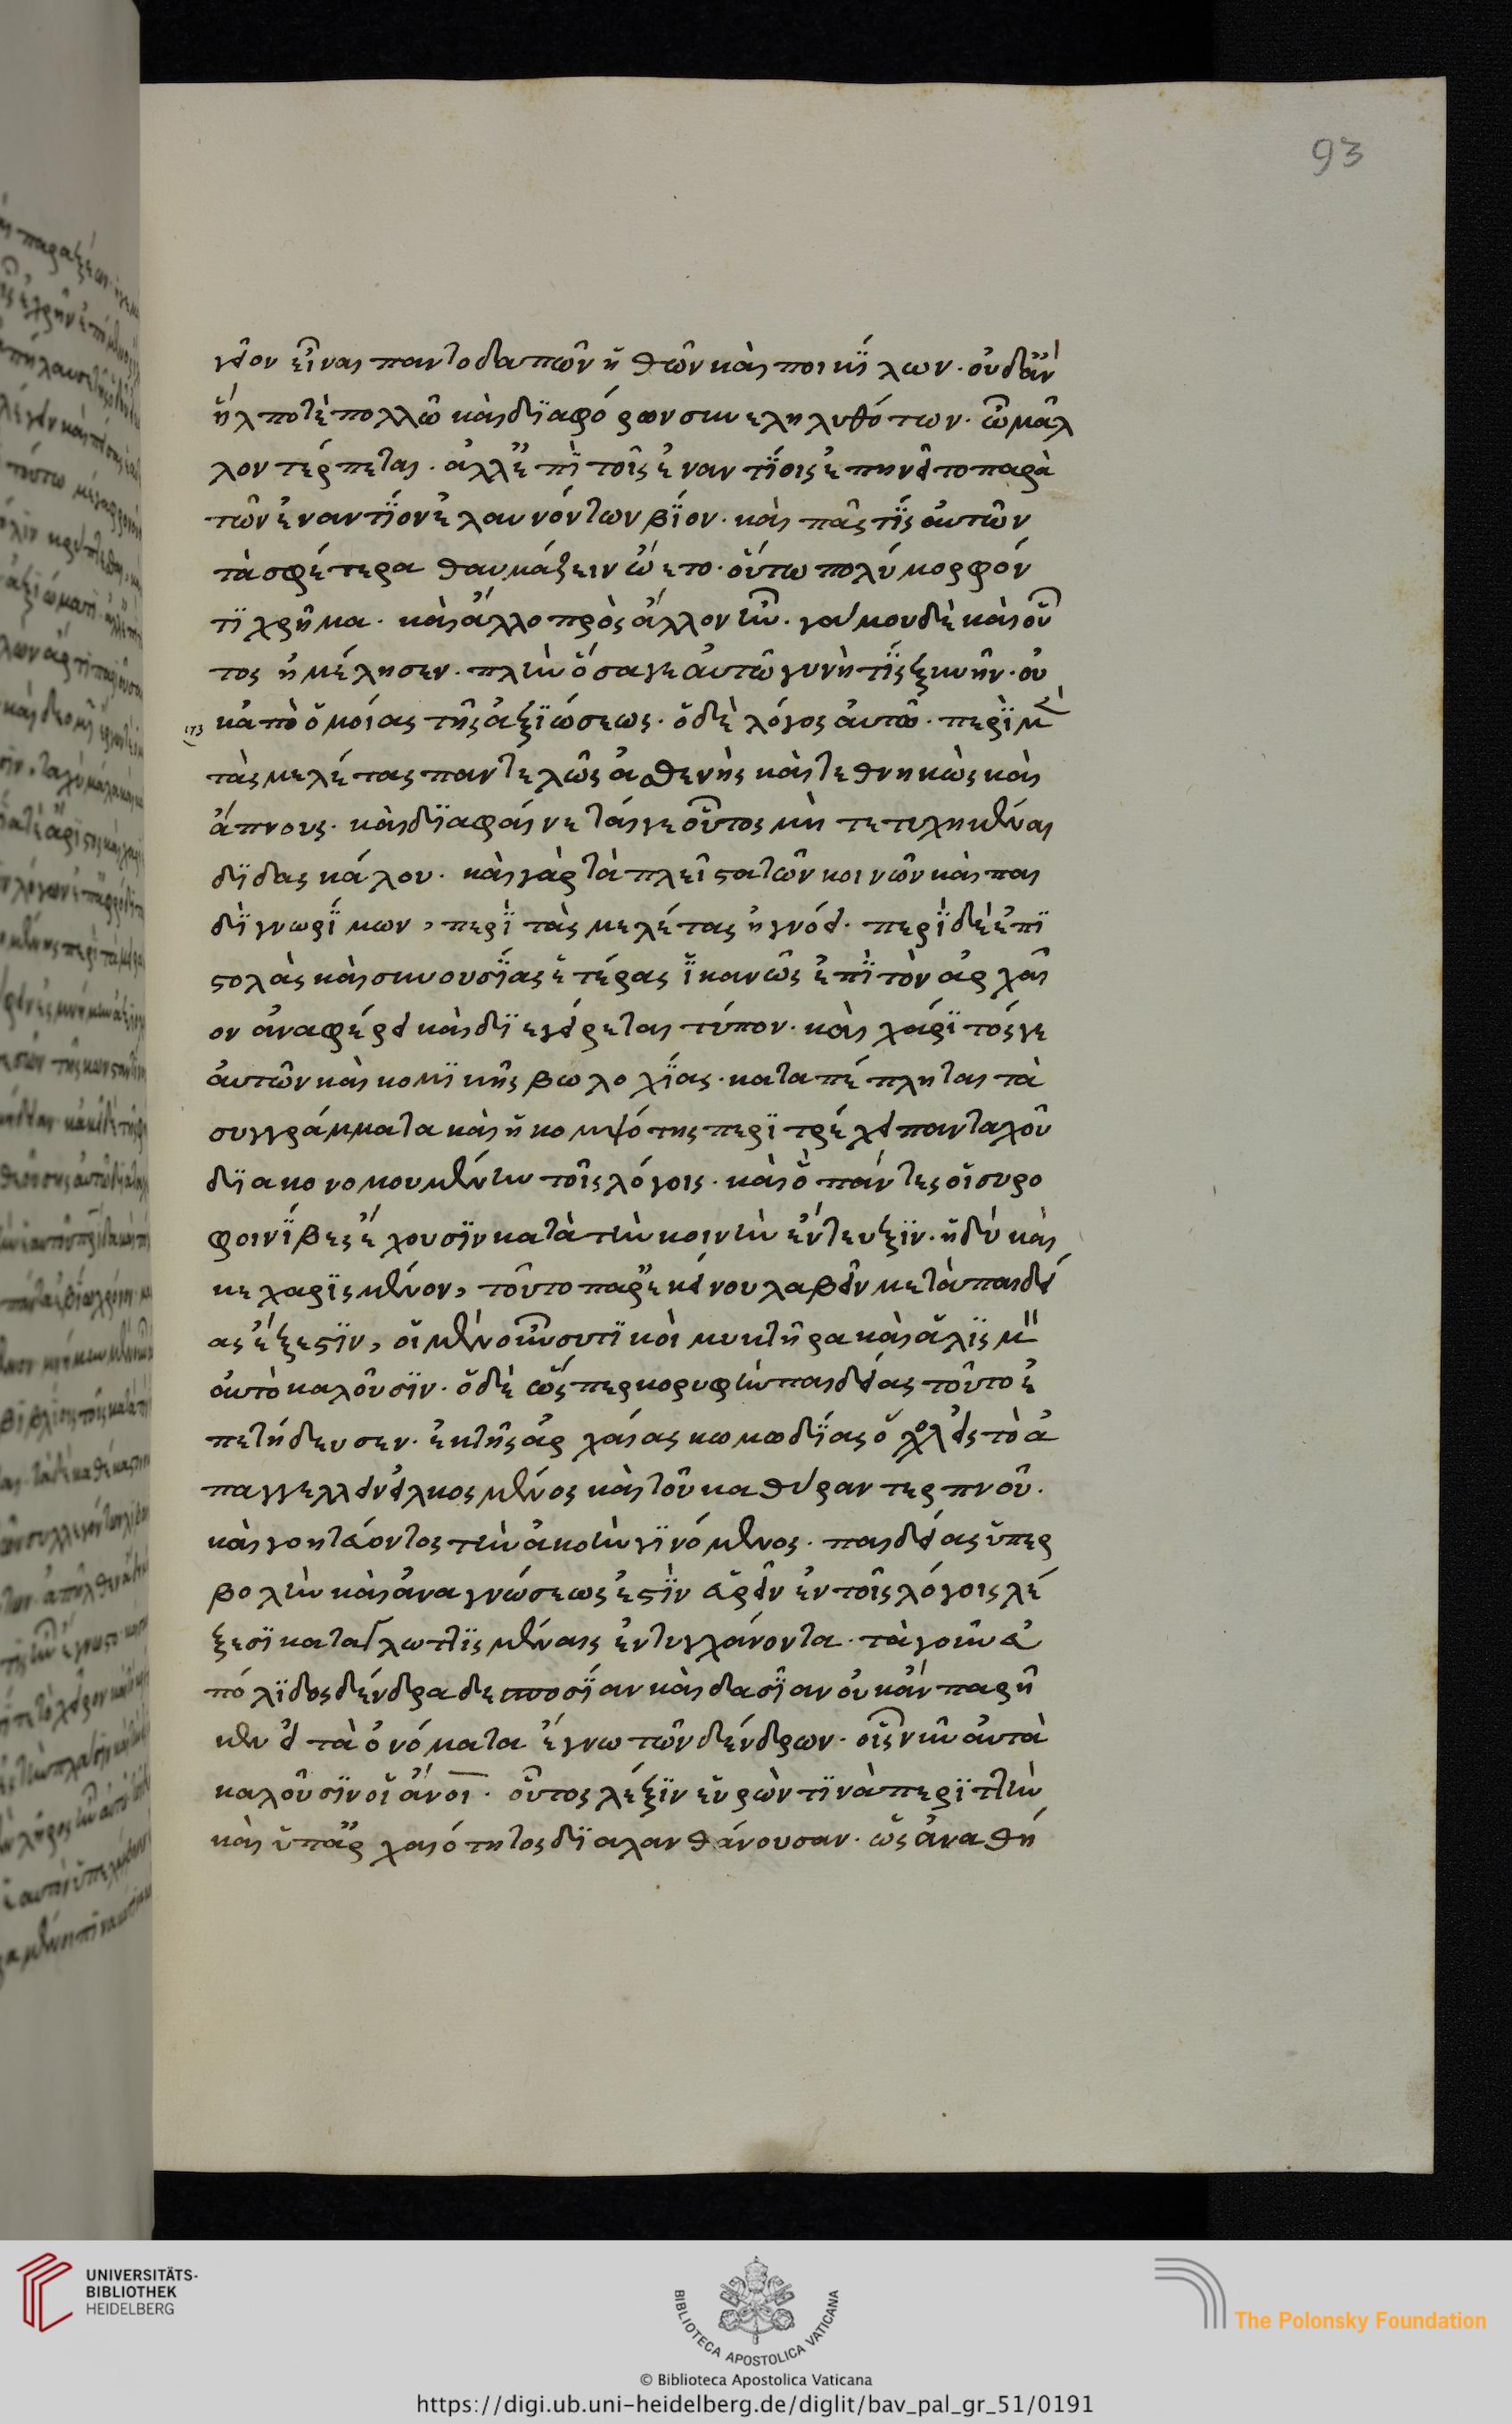 93
γειον εἶναι παντοδαπῶν ἠθῶν καὶ ποικίλων· οὐδ' ἂν
ἤλποτε πολλῶ καὶ διαφόρων συνεληλυθότων· ὧ μᾶλ
λον τέρπεται· ἀλλ' ἐπὶ τοῖς ἐναντίοις ἐπηνεῖτο παρὰ
τῶν ἐναντίον ἐλαυνόντων βίον· καὶ πᾶς τίς αὐτῶν
τὰ σφέτερα θαυμάζειν ὤετο· οὕτω πολύμορφόν
τι χρῆμα· καὶ ἄλλο πρὸς ἄλλον ἦν· γάμου δὲ καὶ οὗ
τος ἠμέλησεν· πλὴν ὅσα γε αὐτῶ γυνή τις ξυνῆν· οὐ
κ ἀπὸ ὁμοίας τῆς ἀξιώσεως· ὁ δὲ λόγος αὐτῶ· περὶ μὲν
τὰς μελέτας παντελῶς ἀσθενὴς καὶ τεθνηκὼς καὶ
ἄπνους· καὶ διαφαίνεταί γε οὗτος μὴ τετυχηκέναι
διδασκάλου· καὶ γὰρ τὰ πλεῖστα τῶν κοινῶν καὶ παι
δὶ γνωρίμων, περὶ τὰς μελέτας ἠγνόει· περὶ δὲ ἐπι
στολὰς καὶ συνουσίας ἑτέρας ἱκανῶς ἐπὶ τὸν ἀρχαῖ
ον ἀναφέρει καὶ διεγείρεται τύπον· καὶ χάριτός γε
αὐτῶν καὶ κομικῆς βωλοχίας· καταπέπληται τὰ
συγγράμματα καὶ ἡ κομψότης περιτρέχει πανταχοῦ
διακονουμένη τοῖς λόγοις· καὶ ὃ πάντες οἱ συρο
φοινίβες ἔχουσιν κατὰ τὴν κοινὴν ἔντευξιν· ἡδὺ καὶ
κεχαρισμένον, τοῦτο παρ' ἐκείνου λαβεῖν μετὰ παιδεί
ας ἔξεστιν, οἱ μὲν οὖν ἀττικοὶ μυκτῆρα καὶ ἀστεϊσμὸν
αὐτὸ καλοῦσιν· ὁ δὲ ὥσπερ κορυφὴν παιδείας τοῦτο ἐ
πετήδευσεν· ἐκ τῆς ἀρχαίας κωμωδίας ὅλως εἰς τὸ ἀ
παγγέλλειν εἱλκυσμένος καὶ τοῦ κατὰ θύραν τερπνοῦ·
καὶ γοητεύοντος τὴν ἀκοὴν γινόμενος· παιδείας ὑπερ
βολὴν καὶ ἀναγνώσεως ἐστὶν εὑρεῖν ἐν τοῖς λόγοις λέ
ξεσι καταγλωττισμέναις ἐντυγχάνοντα· τὰ γοῦν εὐ
πόλιδος δένδρα δεπουσίαν καὶ δασίαν οὐκ ἂν παρῆ
κεν εἰ τὰ ὀνόματα ἔγνω τῶν δένδρων· οἷς νῦν αὐτὰ
καλοῦσιν οἱ ἄνοι· οὗτος λέξιν εὑρών τινα περιττὴν
καὶ ὑπ' ἀρχαιότητος διαλανθάνουσαν· ὡς ἀναθή
UNIVERSITÄTS-
BIBLIOTHEK
HEIDELBERG
BIBLIOTECA APOSTOLICA VATICANA
The Polonsky Foundation
© Biblioteca Apostolica Vaticana
https://digi.ub.uni-heidelberg.de/diglit/bav_pal_gr_51/0191